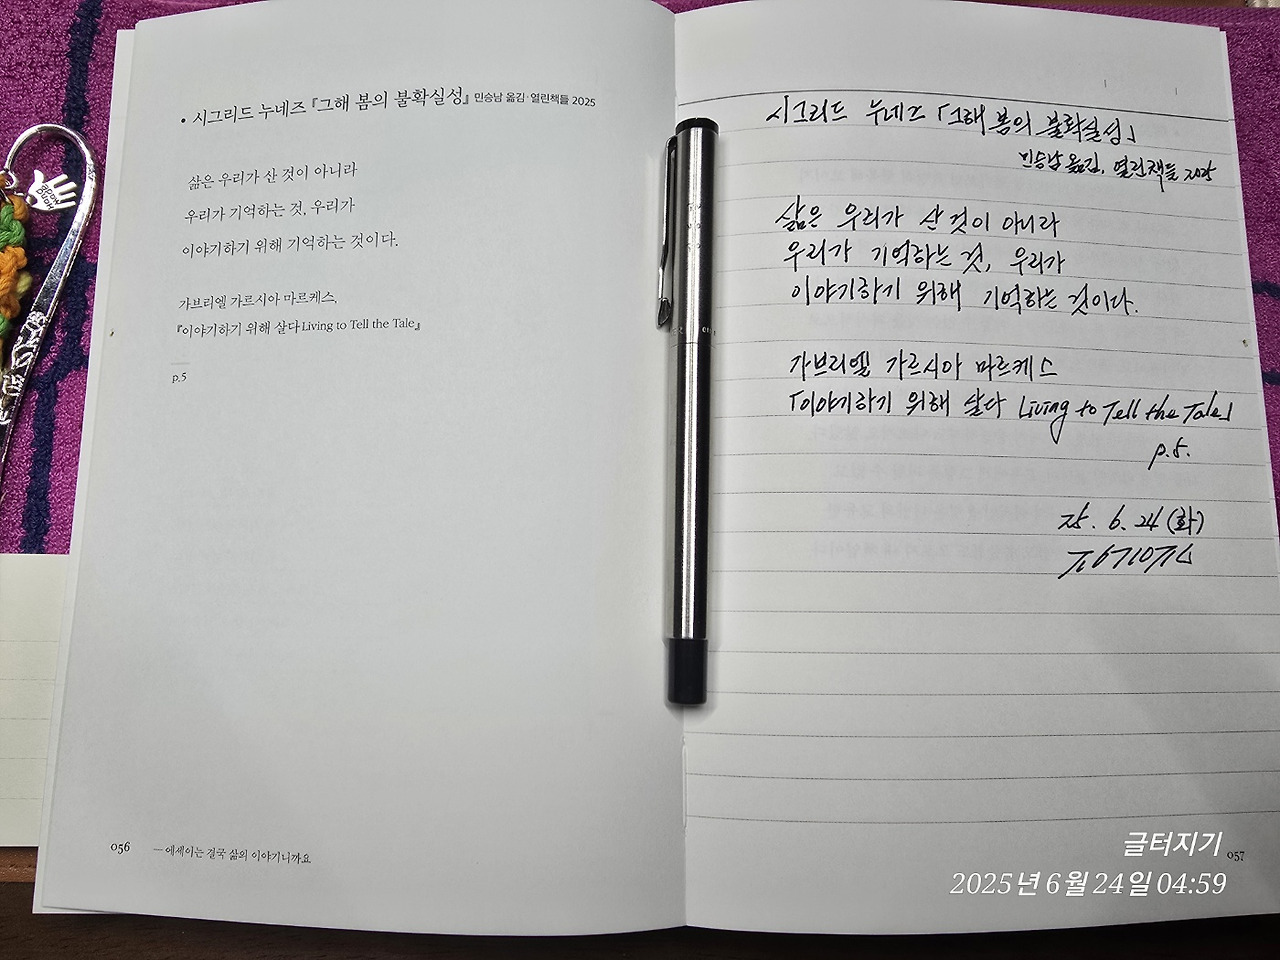 • 시그리드 누네즈 『그해 봄의 불확실성』 민승남 옮김·열린책들 2025
삶은 우리가 산 것이 아니라
우리가 기억하는 것, 우리가
이야기하기 위해 기억하는 것이다.
가브리엘 가르시아 마르케스,
『이야기하기 위해 살다Living to Tell the Tale』
p.5
056 — 에세이는 결국 삶의 이야기니까요
시그리드 누네즈 「그해 봄의 불확실성」
민승남 옮김, 열린책들 2025
삶은 우리가 산 것이 아니라
우리가 기억하는 것, 우리가
이야기하기 위해 기억하는 것이다.
가브리엘 가르시아 마르케스
「이야기하기 위해 살다 Living to Tell the Tale」
p.5.
25. 6. 24 (화)
글터지기
057
2025년 6월 24일 04:59